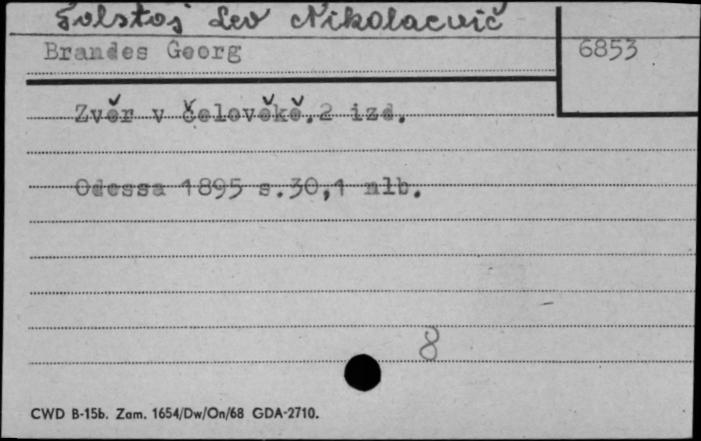 Tolstoj Lev Nikolaevič
Brandes Georg
6853
Zvěr v čelověkě.2 izd.
Odessa 1895 s.30,1 nlb.
8
CWD B-15b. Zam. 1654/Dw/On/68 GDA-2710.